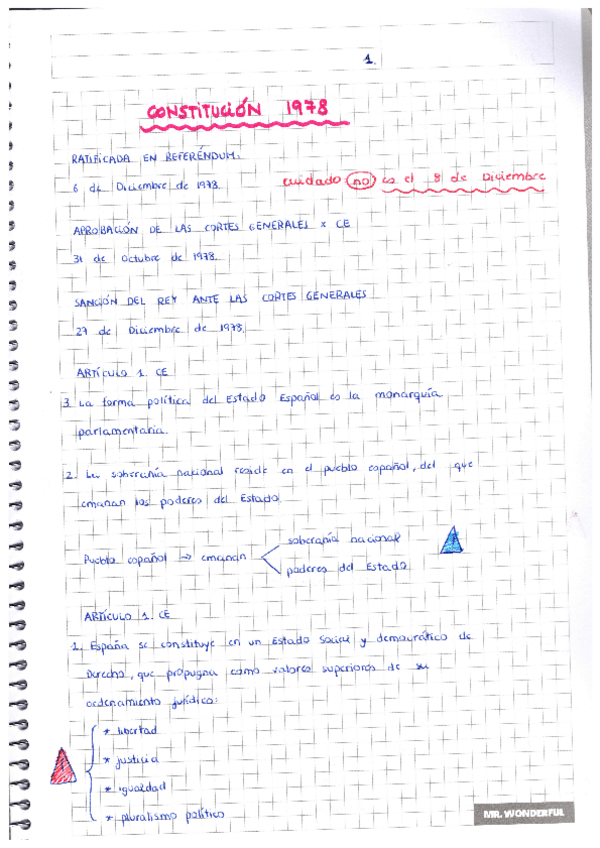 1.
CONSTITUCIÓN 1978
RATIFICADA EN REFERÉNDUM:
6 de Diciembre de 1978. cuidado no es el 8 de Diciembre
APROBACIÓN DE LAS CORTES GENERALES x CE
31 de octubre de 1978.
SANCIÓN DEL REY ANTE LAS CORTES GENERALES
27 de Diciembre de 1978.
ARTÍCULO 1. CE
3. La forma política del Estado Español es la monarquía
parlamentaria.
2. La soberanía nacional reside en el pueblo español, del que
emanan los poderes del Estado.
soberanía nacional
Pueblo español → emanan
poderes del Estado
ARTÍCULO 1. CE
1. España se constituye en un Estado Social y democrático de
Derecho, que propugna como valores superiores de su
ordenamiento jurídico:
* libertad
* justicia
* igualdad
* pluralismo político
MR. WONDERFUL